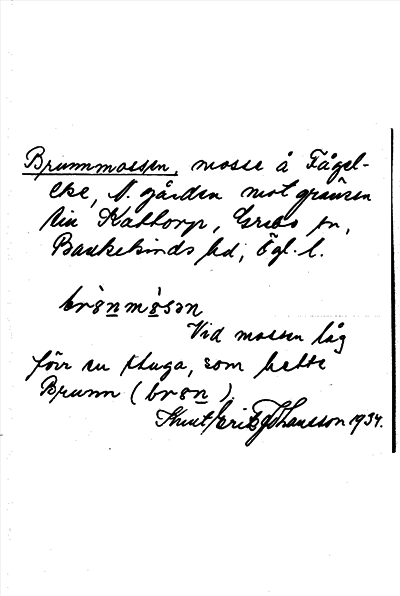 Brunnmossen, mosse å Fågel-
eke, N. gården mot gränsen
till Kättorp, Grebo sn,
Bankekinds hd, Ögl. l.
brȣ̀nmɷ̀sən
Vid mossen låg
förr en stuga, som hette
Brunn (brȣn).
Knut Erik Johansson 1934.